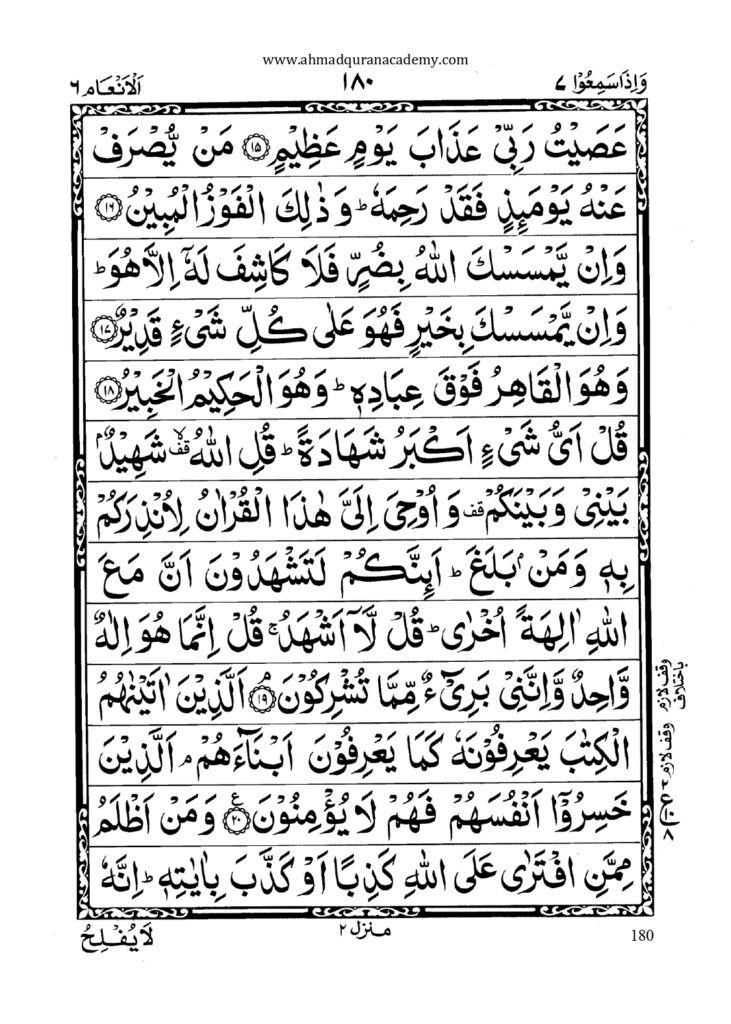 www.ahmadquranacademy.com
وَاِذَاسَمِعُوْا ۷ ۱۸۰ اَلْاَنْعَام ۶
عَصَيْتُ رَبِّيْ عَذَابَ يَوْمٍ عَظِيْمٍ ۝۱۵ مَنْ يُّصْرَفْ
عَنْهُ يَوْمَىِٕذٍ فَقَدْ رَحِمَهٗ ؕ وَ ذٰلِكَ الْفَوْزُ الْمُبِيْنُ ۝۱۶
وَاِنْ يَّمْسَسْكَ اللّٰهُ بِضُرٍّ فَلَا كَاشِفَ لَهٗۤ اِلَّا هُوَ ؕ
وَاِنْ يَّمْسَسْكَ بِخَيْرٍ فَهُوَ عَلٰى كُلِّ شَيْءٍ قَدِيْرٌ ۝۱۷
وَهُوَ الْقَاهِرُ فَوْقَ عِبَادِهٖ ؕ وَهُوَ الْحَكِيْمُ الْخَبِيْرُ ۝۱۸
قُلْ اَيُّ شَيْءٍ اَكْبَرُ شَهَادَةً ؕ قُلِ اللّٰهُ ۙ۫ قف شَهِيْدٌۢ
بَيْنِيْ وَبَيْنَكُمْ قف وَ اُوْحِيَ اِلَيَّ هٰذَا الْقُرْاٰنُ لِاُنْذِرَكُمْ
بِهٖ وَمَنْۢ بَلَغَ ؕ اَىِٕنَّكُمْ لَتَشْهَدُوْنَ اَنَّ مَعَ
اللّٰهِ اٰلِهَةً اُخْرٰى ؕ قُلْ لَّاۤ اَشْهَدُ ۚ قُلْ اِنَّمَا هُوَ اِلٰهٌ
وَّاحِدٌ وَّاِنَّنِيْ بَرِيْٓءٌ مِّمَّا تُشْرِكُوْنَ ۘ۝۱۹ اَلَّذِيْنَ اٰتَيْنٰهُمُ
الْكِتٰبَ يَعْرِفُوْنَهٗ كَمَا يَعْرِفُوْنَ اَبْنَآءَهُمْ ۘ اَلَّذِيْنَ
خَسِرُوْۤا اَنْفُسَهُمْ فَهُمْ لَا يُؤْمِنُوْنَ ۝۲۰ ع وَمَنْ اَظْلَمُ
مِمَّنِ افْتَرٰى عَلَى اللّٰهِ كَذِبًا اَوْ كَذَّبَ بِاٰيٰتِهٖ ؕ اِنَّهٗ
وقف لازم باختلاف
وقف لازم
منزل ۲
لَا يُفْلِحُ
180